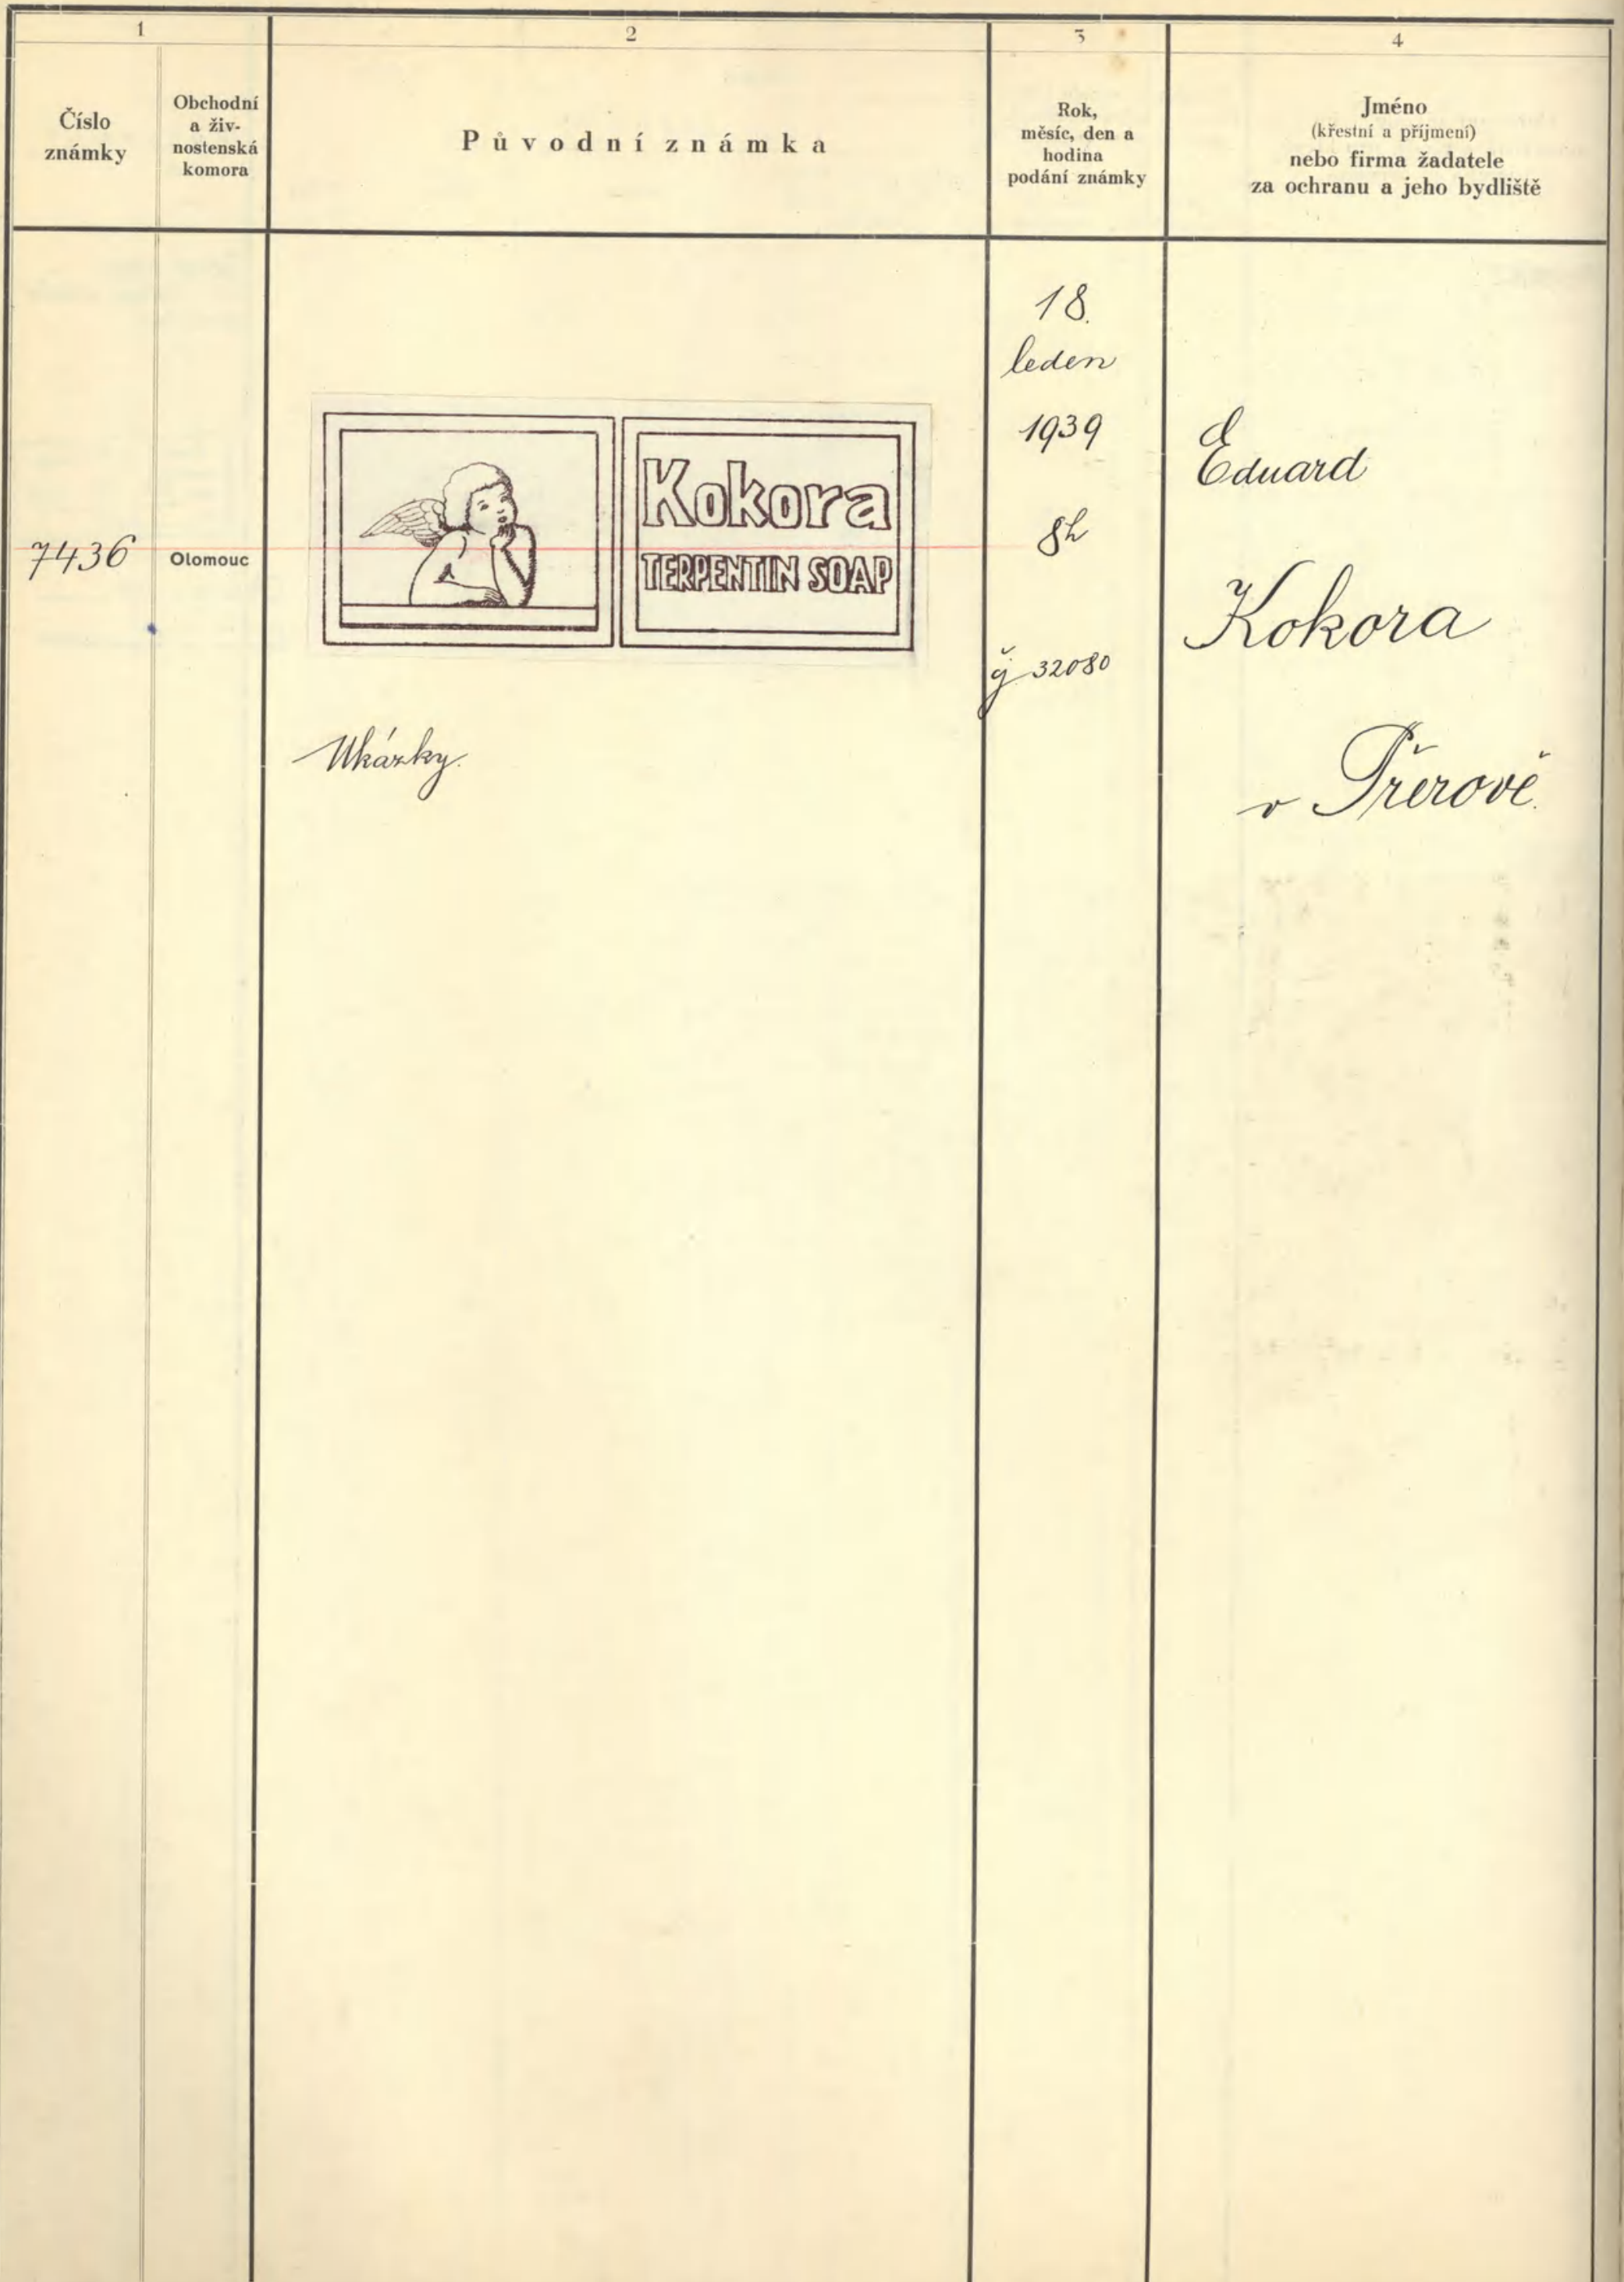 1
2
3
4
Číslo
známky
Obchodní
a živ-
nostenská
komora
Původní známka
Rok,
měsíc, den a
hodina
podání známky
Jméno
(křestní a příjmení)
nebo firma žadatele
za ochranu a jeho bydliště
7436
Olomouc
Kokora
TERPENTIN SOAP
Ukázky.
18.
leden
1939
8h
32080
Eduard
Kokora
v Přerově.